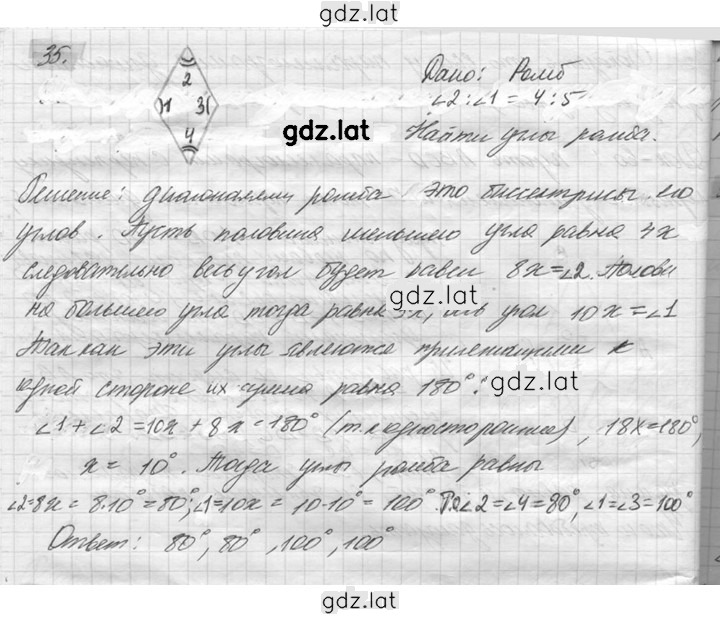 gdz.lat
35.
2
1 3
4
Дано: Ромб
∠2:∠1 = 4:5
gdz.lat
Найти углы ромба.
Решение: диагоналями ромба это биссектрисы его
углов. Пусть половина меньшего угла равна 4x
следовательно весь угол будет равен 8x=∠2. Полови
на большего угла тогда равна 5x, угол 10x=∠1
gdz.lat
Так как эти углы являются прилежащими к
одной стороне их сумма равна 180°:
gdz.lat
∠1+∠2=10x+8x=180° (т.к односторонние), 18x=180°,
x=10°. Тогда углы ромба равны
∠2=8x=8·10°=80°; ∠1=10x=10·10°=100°. ∠2=∠4=80°, ∠1=∠3=100°
Ответ: 80°, 80°, 100°, 100°
gdz.lat